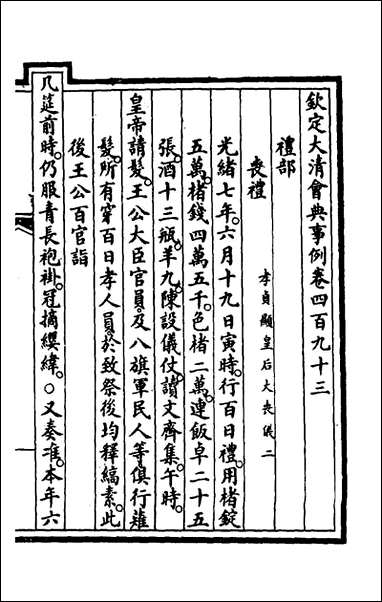 欽定大清會典事例卷四百九十三
禮部
喪禮 孝貞顯皇后大喪儀二
光緒七年六月十九日寅時行百日禮用楮錠
五萬楮錢四萬五千色楮二萬連飯卓二十五
張酒十三瓶羊九陳設儀仗讀文齊集午時
皇帝請髮王公大臣官員及八旗軍民人等俱行薙
髮所有穿百日孝人員於致祭後均釋縞素此
後王公百官詣
几筵前時仍服青長袍褂冠摘纓緯○又奏准本年六